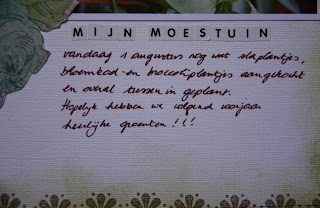 MIJN MOESTUIN
vandaag 1 augustus nog wat slaplantjes,
bloemkool- en broccoliplantjes aangekocht
en overal tussen in geplant.
Hopelijk hebben we volgend voorjaar
heerlijke groenten!!!